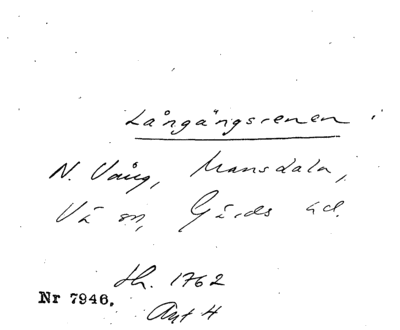 Långängsrenen i
N. Vång, Mansdala,
Vä sn, Gärds hd.
th. 1762
Nr 7946.
Avt 4